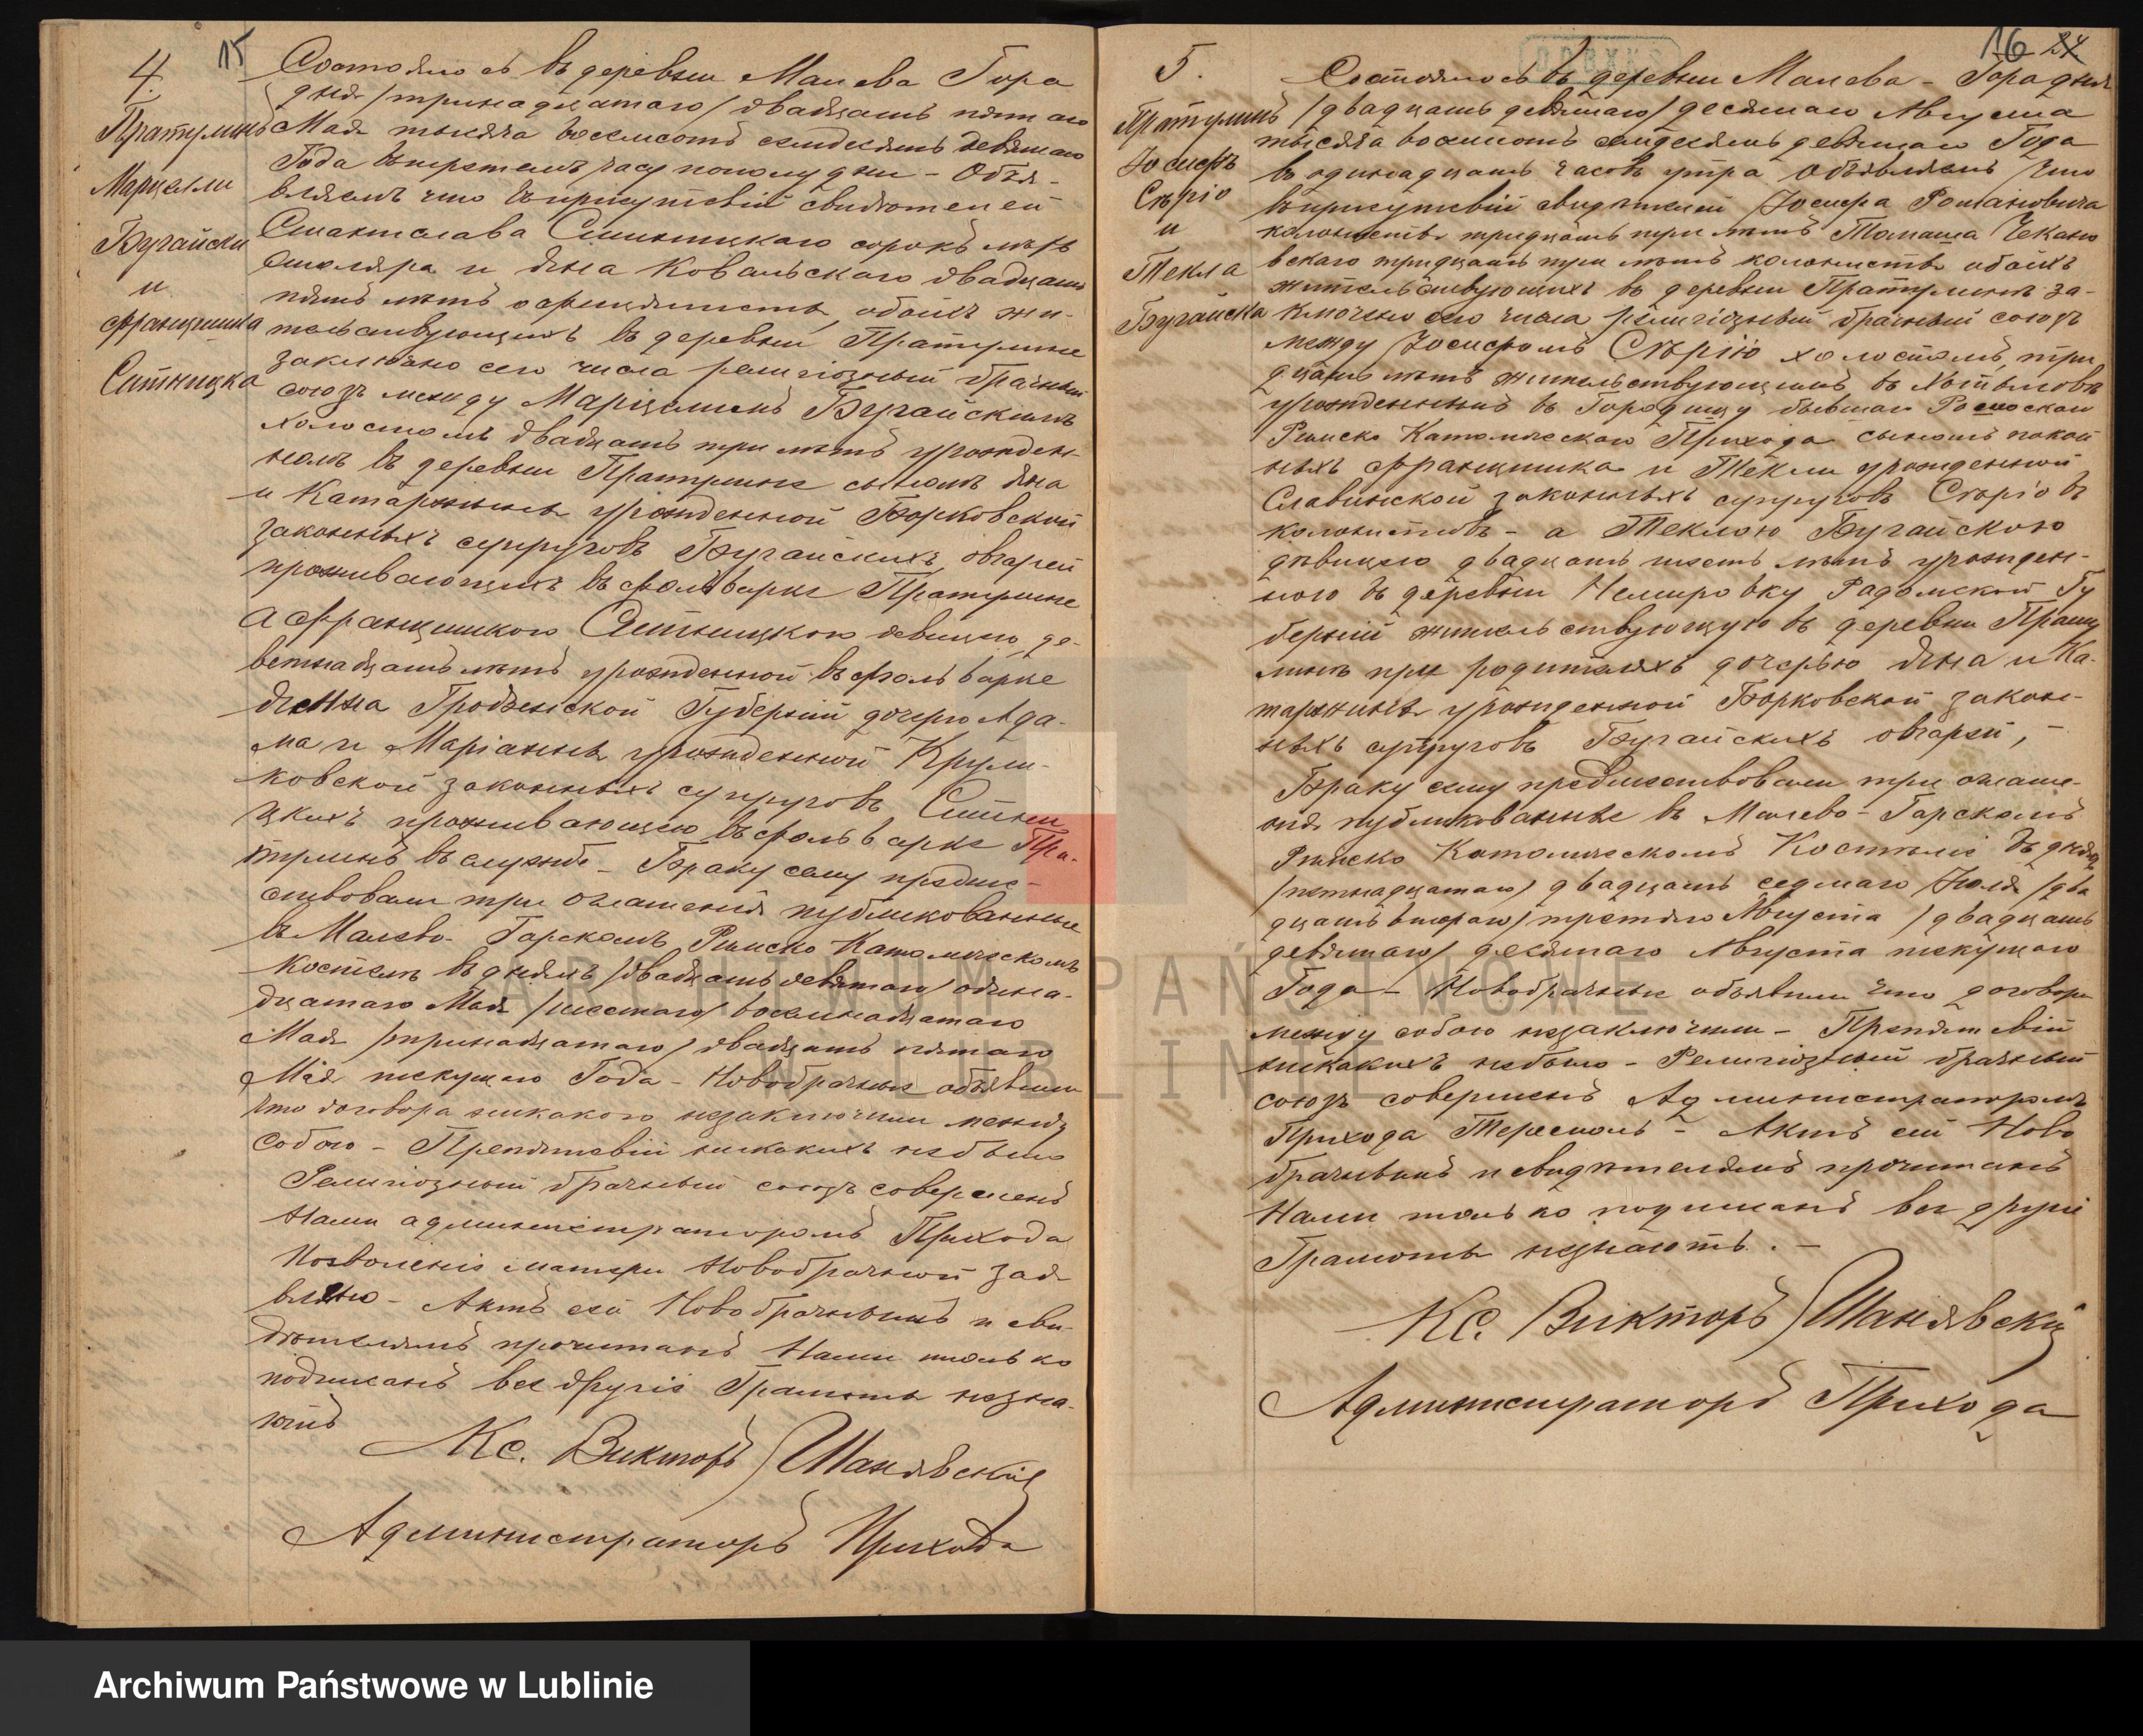 15
4.
Пратулинъ
Марцелли
Бугайски
и
Францишка
Ситницка
Состоялось въ деревни Малева Гора
дня /тринадцатаго/ двадцать пятаго
Мая тысяча восемсотъ семдесятъ девятаго
Года въ часу пополудни - Объя-
вляемъ что въ присутствіи свидѣтелей
Станислава сорокъ лѣтъ
столяра и Яна Ковальского двадцать
пять лѣтъ обоихъ жи-
тельствующихъ въ деревни Пратулине
заключено сего числа религіозный брачный
союзъ между Марцелимъ Бугайскимъ
холостомъ двадцать три лѣтъ урожден-
номъ въ деревни Пратулине сыномъ Яна
и Катаржины урожденной Борковской
законныхъ супруговъ Бугайскихъ овчарей
проживающихъ въ фольварке Пратулине
а Францишкою Ситницкою девицею, де-
ветнадцать лѣтъ урожденной въ фольварке
Гродзенской Губерніи дочерю Ада-
ма и Маріанны урожденной Крули-
ковской законныхъ супруговъ Ситни
цкихъ проживающею въ фольварке Пра-
тулинъ въ службе - Браку сему предше-
ствовали три оглашенія публикованные
въ Малево-Горскомъ Римско Католическомъ
Костелѣ въ дняхъ /двадцать девятаго/ одина-
дцатаго Мая /шестаго/ восемнадцатаго
Мая /тринадцатаго/ двадцать пятаго
Мая текущаго Года - Новобрачные объявили
что договора никакого незаключили между
собою - Препятствій никакихъ небыло
Религіозный брачный союзъ совершенъ
Нами администраторомъ Прихода
Позволеніе матери Новобрачной зая
влено - Актъ сей Новобрачнымъ и сви-
дѣтелямъ прочитанъ Нами только
подписанъ все другіе Грамоты незна-
ютъ
Кс. Викторъ Шанявскій
Администраторъ Прихода
16 24
5.
Пратулинъ
Іосифъ
Сѣріо
и
Текла
Бугайска
Состоялось въ деревни Малева - Гора дня
/двадцать девятаго/ десятаго Августа
тысяча восемсотъ семдесятъ девятаго Года
въ одинадцать часовъ утра Объявляемъ что
въ присутствіи свидѣтелей Іосифа Романовича
колонисты тридцать три лѣтъ Томаша Чекано
вскаго тридцать три лѣтъ колонисты обоихъ
жительствующихъ въ деревни Пратулинъ за-
ключено сего числа религіозный брачный союзъ
между Іосифомъ Сѣріо холостомъ, три
дцать лѣтъ жительствующимъ въ
урожденнымъ въ Городищу бывшаго Россоскаго
Римско Католическаго Прихода сыномъ покой
ныхъ Францишка и Текли урожденной
Славинской законныхъ супруговъ Сѣріовъ
колонистовъ - а Теклою Бугайскою
дѣвицею двадцать шесть лѣтъ урожден-
ною въ деревни Немировку Радомской Гу
берніи жительствующую въ деревни Прату
линъ при родителяхъ дочерью Яна и Ка-
таржины урожденной Борковской закон-
ныхъ супруговъ Бугайскихъ овчарей, -
Браку сему предшествовали три оглаше-
нія публикованные въ Малево-Горскомъ
Римско Католическомъ Костелѣ въ дняхъ
/петнадцатаго/ двадцать седмаго Іюля /два
дцать втораго/ третяго Августа /двадцать
девятаго/ десятаго Августа текущаго
Года - Новобрачные объявили что договора
между собою незаключили - Препятствій
никакихъ небыло - Религіозный брачный
союзъ совершенъ Администраторомъ
Прихода Тересполь - Актъ сей Ново
брачнымъ и свидѣтелямъ прочитанъ
Нами только подписанъ все другіе
Грамоты незнаютъ. -
Кс. Викторъ Шанявскій
Администраторъ Прихода
ARCHIWUM PAŃSTWOWE
W LUBLINIE
Archiwum Państwowe w Lublinie